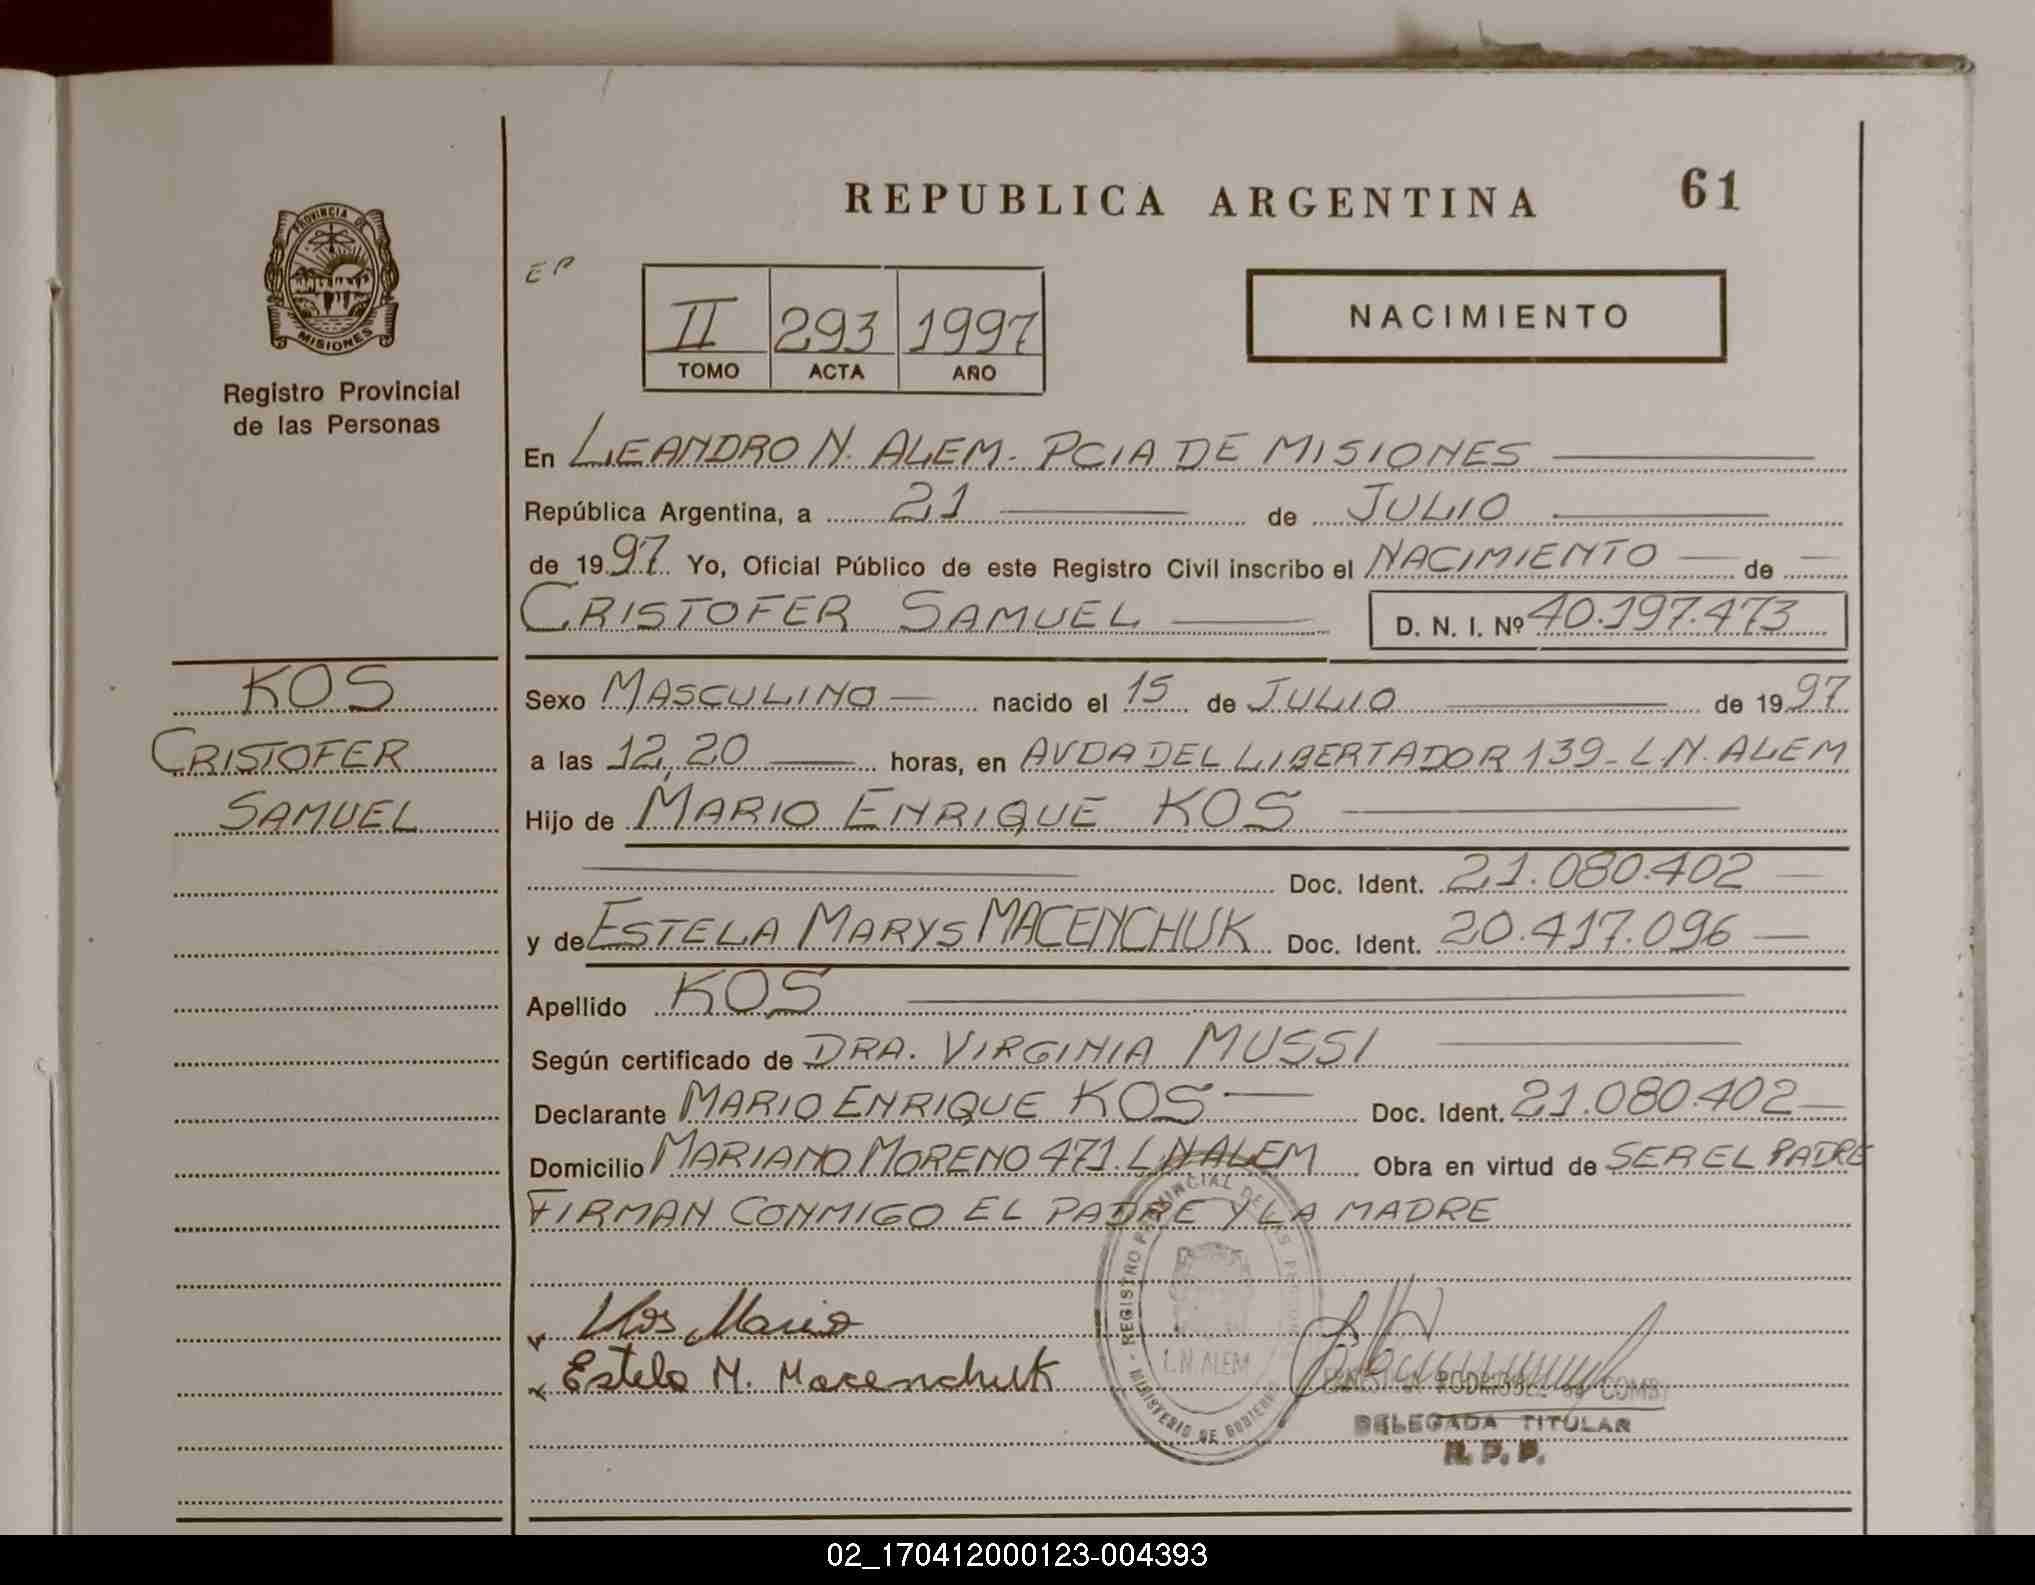 REPUBLICA ARGENTINA 61
PROVINCIA DE
MISIONES
Registro Provincial
de las Personas
EP
II 293 1997
TOMO ACTA AÑO
NACIMIENTO
En LEANDRO N. ALEM - PCIA DE MISIONES
República Argentina, a 21 de JULIO
de 1997 Yo, Oficial Público de este Registro Civil inscribo el NACIMIENTO de
CRISTOFER SAMUEL D. N. I. Nº 40.197.473
KOS
CRISTOFER
SAMUEL
Sexo MASCULINO nacido el 15 de JULIO de 1997
a las 12,20 horas, en AVDA DEL LIBERTADOR 139 - L.N. ALEM
Hijo de MARIO ENRIQUE KOS
Doc. Ident. 21.080.402
y de ESTELA MARYS MACENCHUK Doc. Ident. 20.417.096
Apellido KOS
Según certificado de DRA. VIRGINIA MUSSI
Declarante MARIO ENRIQUE KOS Doc. Ident. 21.080.402
Domicilio MARIANO MORENO 471. L N ALEM Obra en virtud de SER EL PADRE
FIRMAN CONMIGO EL PADRE Y LA MADRE
Kos Mario
Estela M. Macenchuk
REGISTRO PROVINCIAL DE LAS
L.N. ALEM
MINISTERIO DE GOBIERNO
RODRIGUEZ de
DELEGADA TITULAR
R. P. P.
02_170412000123-004393